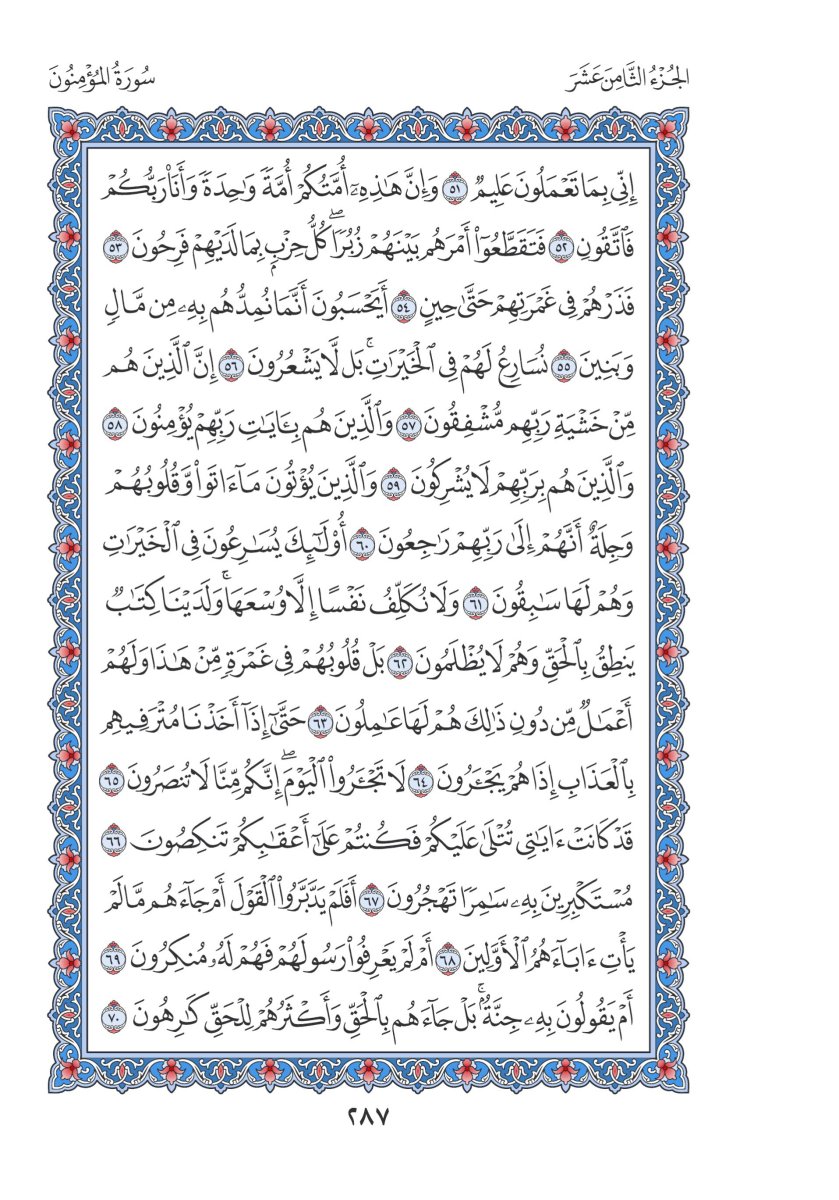 الجُزْءُ الثَّامِنَ عَشَرَ
سُورَةُ المُؤْمِنُونَ
إِنِّي بِمَا تَعْمَلُونَ عَلِيمٌ ٥١ وَإِنَّ هَٰذِهِۦٓ أُمَّتُكُمْ أُمَّةً وَٰحِدَةً وَأَنَا۠ رَبُّكُمْ
فَٱتَّقُونِ ٥٢ فَتَقَطَّعُوٓا۟ أَمْرَهُم بَيْنَهُمْ زُبُرًا ۖ كُلُّ حِزْبٍۭ بِمَا لَدَيْهِمْ فَرِحُونَ ٥٣
فَذَرْهُمْ فِي غَمْرَتِهِمْ حَتَّىٰ حِينٍ ٥٤ أَيَحْسَبُونَ أَنَّمَا نُمِدُّهُم بِهِۦ مِن مَّالٍ
وَبَنِينَ ٥٥ نُسَارِعُ لَهُمْ فِي ٱلْخَيْرَٰتِ ۚ بَل لَّا يَشْعُرُونَ ٥٦ إِنَّ ٱلَّذِينَ هُم
مِّنْ خَشْيَةِ رَبِّهِم مُّشْفِقُونَ ٥٧ وَٱلَّذِينَ هُم بِـَٔايَٰتِ رَبِّهِمْ يُؤْمِنُونَ ٥٨
وَٱلَّذِينَ هُم بِرَبِّهِمْ لَا يُشْرِكُونَ ٥٩ وَٱلَّذِينَ يُؤْتُونَ مَآ ءَاتَوا۟ وَّقُلُوبُهُمْ
وَجِلَةٌ أَنَّهُمْ إِلَىٰ رَبِّهِمْ رَٰجِعُونَ ٦٠ أُو۟لَٰٓئِكَ يُسَٰرِعُونَ فِي ٱلْخَيْرَٰتِ
وَهُمْ لَهَا سَٰبِقُونَ ٦١ وَلَا نُكَلِّفُ نَفْسًا إِلَّا وُسْعَهَا ۚ وَلَدَيْنَا كِتَٰبٌ
يَنطِقُ بِٱلْحَقِّ وَهُمْ لَا يُظْلَمُونَ ٦٢ بَلْ قُلُوبُهُمْ فِي غَمْرَةٍ مِّنْ هَٰذَا وَلَهُمْ
أَعْمَٰلٌ مِّن دُونِ ذَٰلِكَ هُمْ لَهَا عَٰمِلُونَ ٦٣ حَتَّىٰٓ إِذَآ أَخَذْنَا مُتْرَفِيهِم
بِٱلْعَذَابِ إِذَا هُمْ يَجْـَٔرُونَ ٦٤ لَا تَجْـَٔرُوا۟ ٱلْيَوْمَ ۖ إِنَّكُم مِّنَّا لَا تُنصَرُونَ ٦٥
قَدْ كَانَتْ ءَايَٰتِي تُتْلَىٰ عَلَيْكُمْ فَكُنتُمْ عَلَىٰٓ أَعْقَٰبِكُمْ تَنكِصُونَ ٦٦
مُسْتَكْبِرِينَ بِهِۦ سَٰمِرًا تَهْجُرُونَ ٦٧ أَفَلَمْ يَدَّبَّرُوا۟ ٱلْقَوْلَ أَمْ جَآءَهُم مَّا لَمْ
يَأْتِ ءَابَآءَهُمُ ٱلْأَوَّلِينَ ٦٨ أَمْ لَمْ يَعْرِفُوا۟ رَسُولَهُمْ فَهُمْ لَهُۥ مُنكِرُونَ ٦٩
أَمْ يَقُولُونَ بِهِۦ جِنَّةٌۢ ۚ بَلْ جَآءَهُم بِٱلْحَقِّ وَأَكْثَرُهُمْ لِلْحَقِّ كَٰرِهُونَ ٧٠
٢٨٧